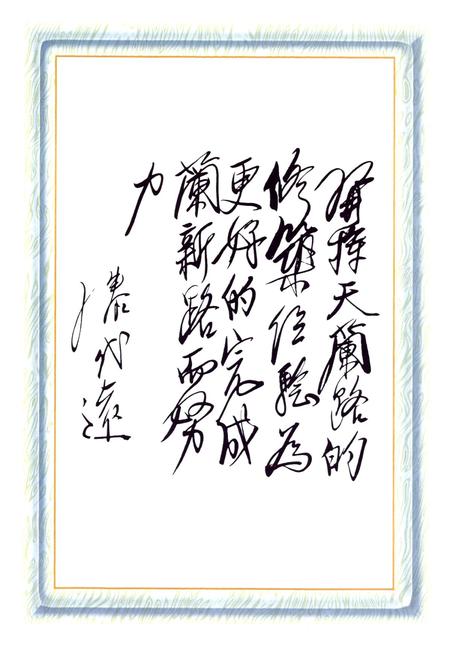 發揮天蘭路的
修築經驗為
更好的完成
蘭新路而努
力
滕代遠